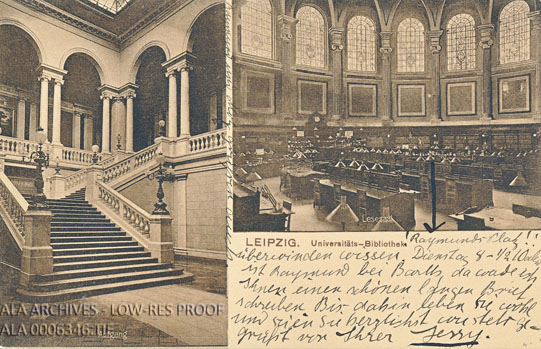 Lesesaal
LEIPZIG. Universitäts-Bibliothek
"Raymunds Platz"!
überwinden wissen, Dienstag 8-12 Uhr
ist Raymund bei
Ihnen einen schönen langen Brief
schreiben Bis dahin leben Sie wohl
und seien Sie herzlichst
grüßt von Ihrer Jerry.
ALA ARCHIVES - LOW-RES PROOF
ALA 0006346.TIF
Aufgang